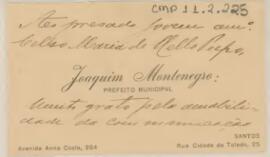 CMP 1 1.2.225
Ao presado jovem am.º
Celso Maria de Mello Pupo,
Joaquim Montenegro:
PREFEITO MUNICIPAL
muito grato pela amabili-
dade da communicação
SANTOS
Avenida Anna Costa, 264
Rua Cidade de Toledo, 25